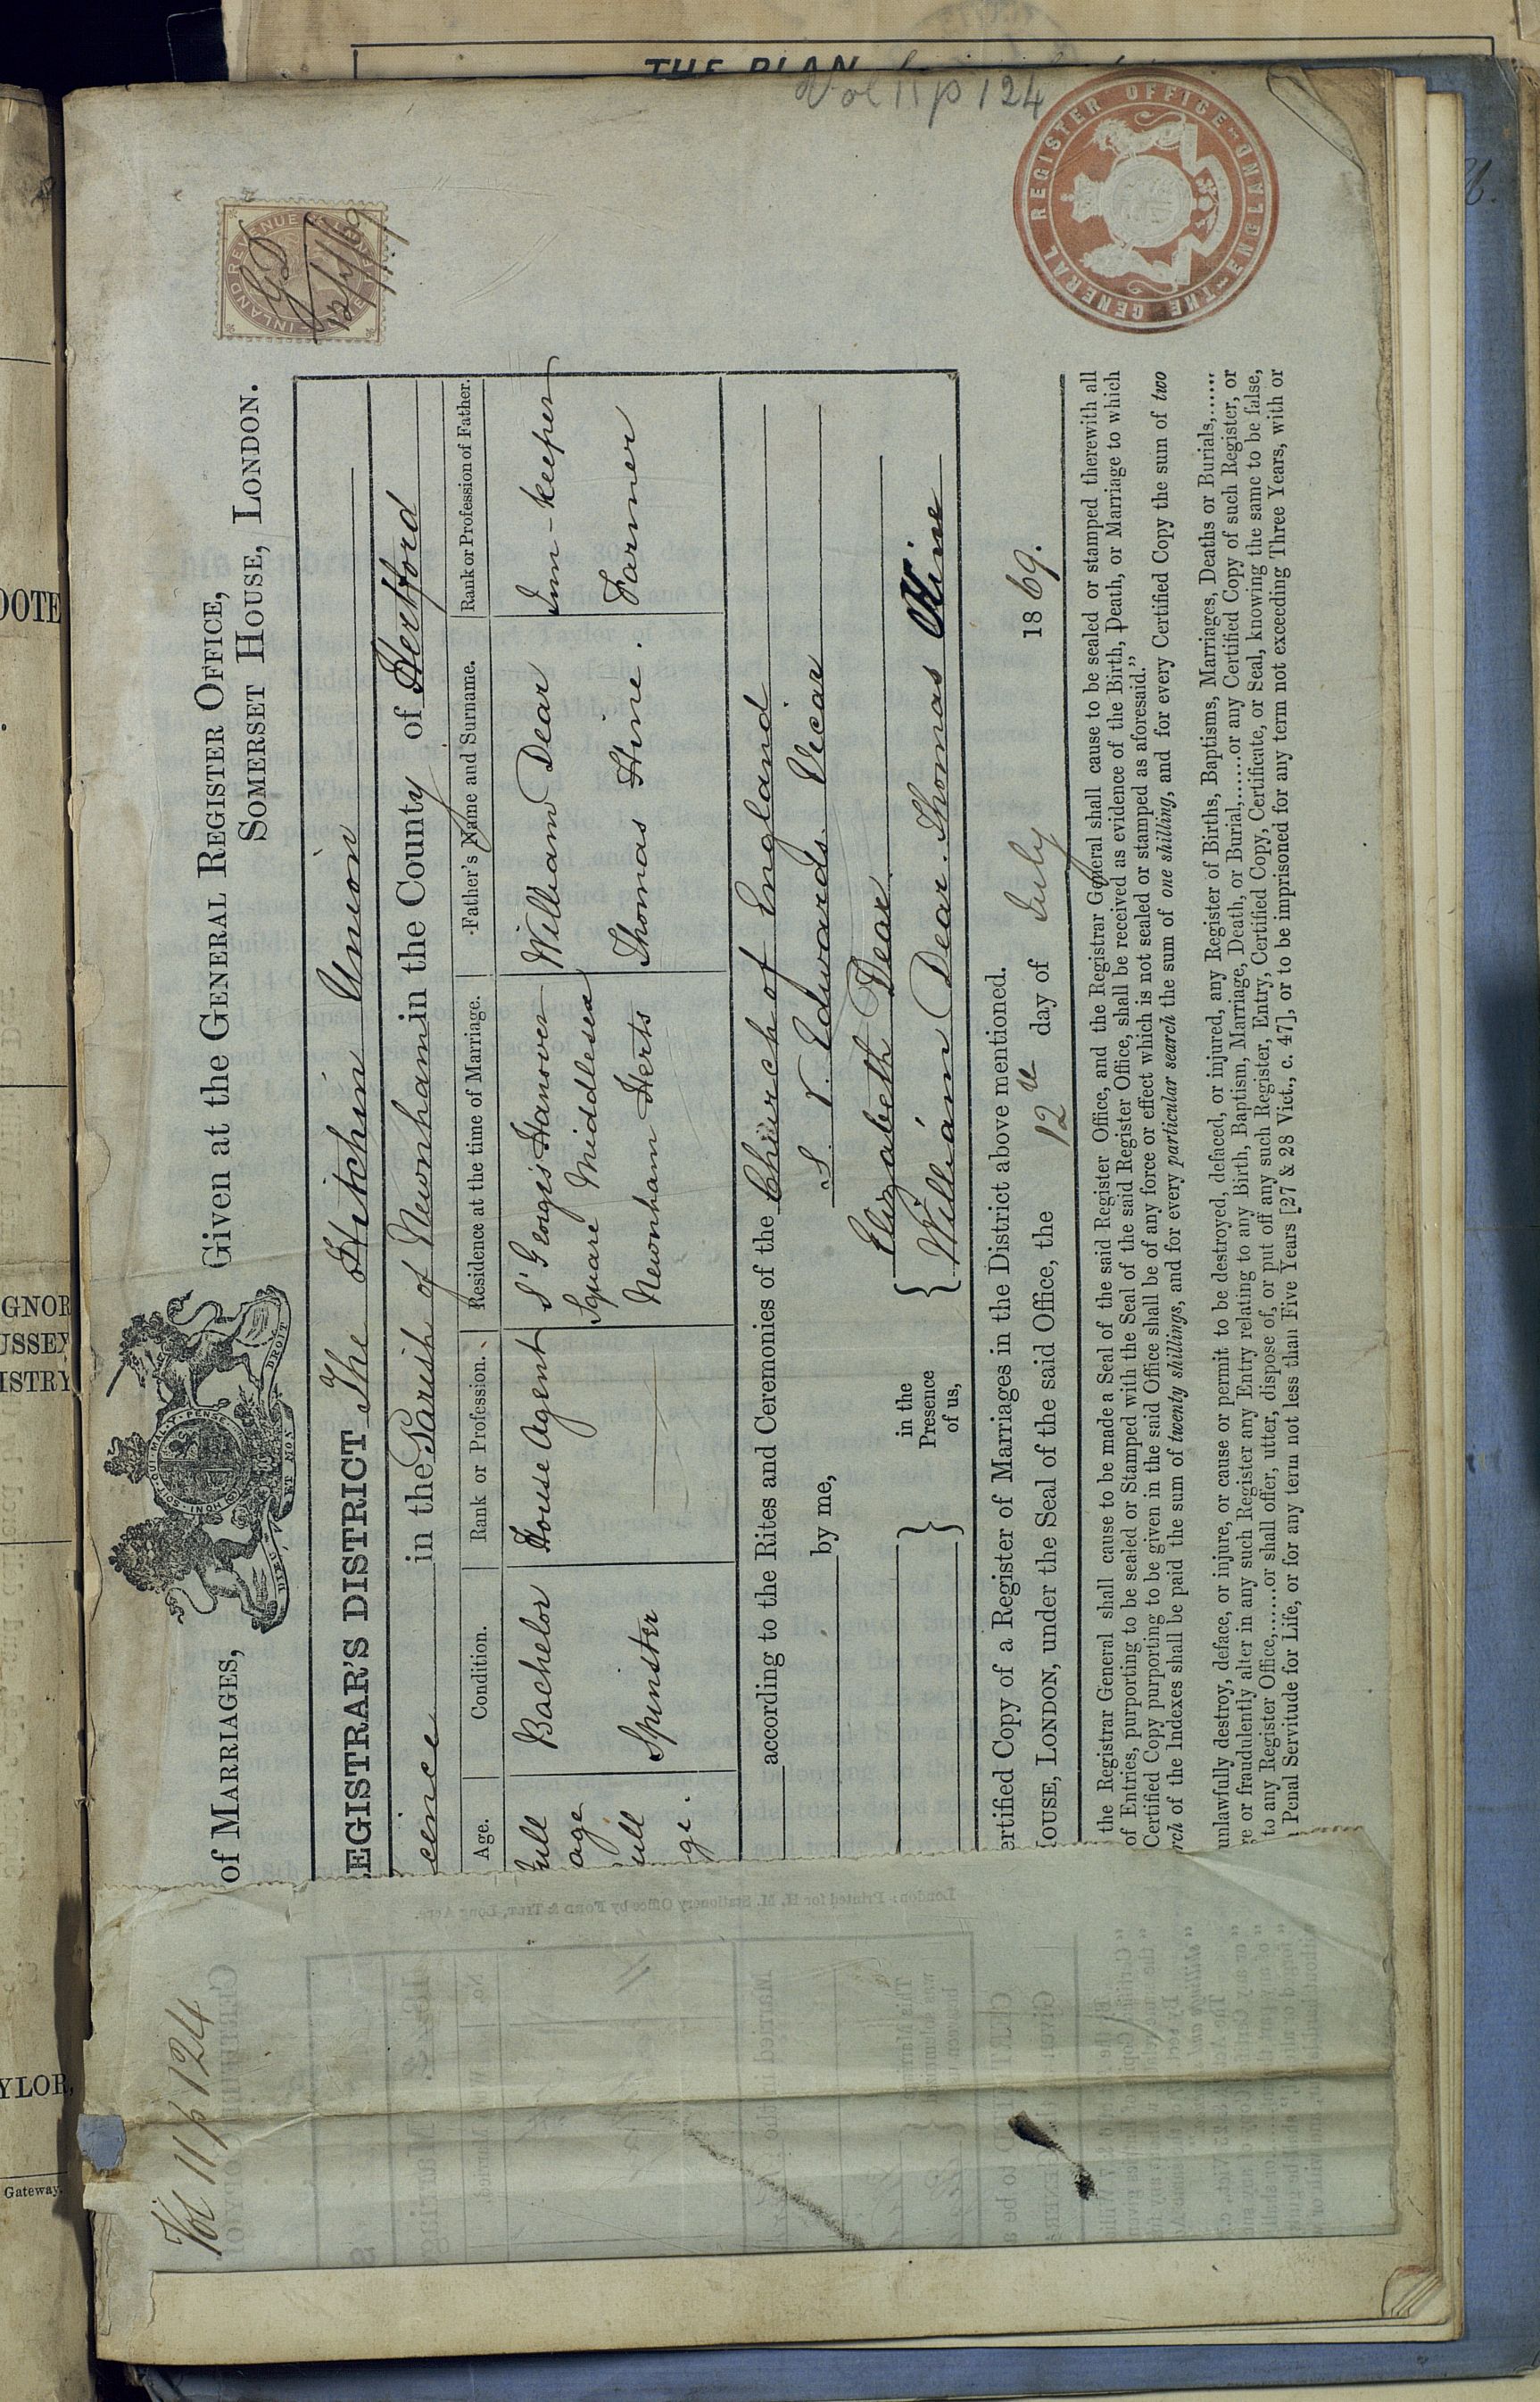 Vol 11 p 124
Vol 11 p 124
of MARRIAGES,
Given at the GENERAL REGISTER OFFICE,
SOMERSET HOUSE, LONDON.
HONI · SOIT · QUI · MAL · Y · PENSE
DIEU ET MON DROIT
INLAND REVENUE
GD
12/7/69
EGISTRAR'S DISTRICT The Hitchin Union
cence in the Parish of Newnham in the County of Hertford
Age. Condition. Rank or Profession. Residence at the time of Marriage. Father's Name and Surname. Rank or Profession of Father.
ull age Bachelor House Agent St George's Hanover Square Middlesex William Dear Inn-keeper
ull ge. Spinster Newnham Herts Thomas Hine. Farmer
according to the Rites and Ceremonies of the Church of England
by me, S. V. Edwards. Vicar
in the Presence of us,
Elizabeth Dear
William Dear. Thomas Hine
ertified Copy of a Register of Marriages in the District above mentioned.
HOUSE, LONDON, under the Seal of the said Office, the 12th day of July 1869.
THE GENERAL REGISTER OFFICE ENGLAND
the Registrar General shall cause to be made a Seal of the said Register Office, and the Registrar General shall cause to be sealed or stamped therewith all
of Entries, purporting to be sealed or Stamped with the Seal of the said Register Office, shall be received as evidence of the Birth, Death, or Marriage to which
Certified Copy purporting to be given in the said Office shall be of any force or effect which is not sealed or stamped as aforesaid."
rch of the Indexes shall be paid the sum of twenty shillings, and for every particular search the sum of one shilling, and for every Certified Copy the sum of two
unlawfully destroy, deface, or injure, or cause or permit to be destroyed, defaced, or injured, any Register of Births, Baptisms, Marriages, Deaths or Burials,......
re or fraudulently alter in any such Register any Entry relating to any Birth, Baptism, Marriage, Death, or Burial,......or any Certified Copy of such Register, or
to any Register Office,......or shall offer, utter, dispose of, or put off any such Register, Entry, Certified Copy, Certificate, or Seal, knowing the same to be false,
Penal Servitude for Life, or for any term not less than Five Years [27 & 28 Vict., c. 47], or to be imprisoned for any term not exceeding Three Years, with or
London: Printed for H. M. Stationery Office by FORD & TILT, Long Acre.
THE PLAN
OOTE
GNOR
USSEX
ISTRY
YLOR,
Gateway.